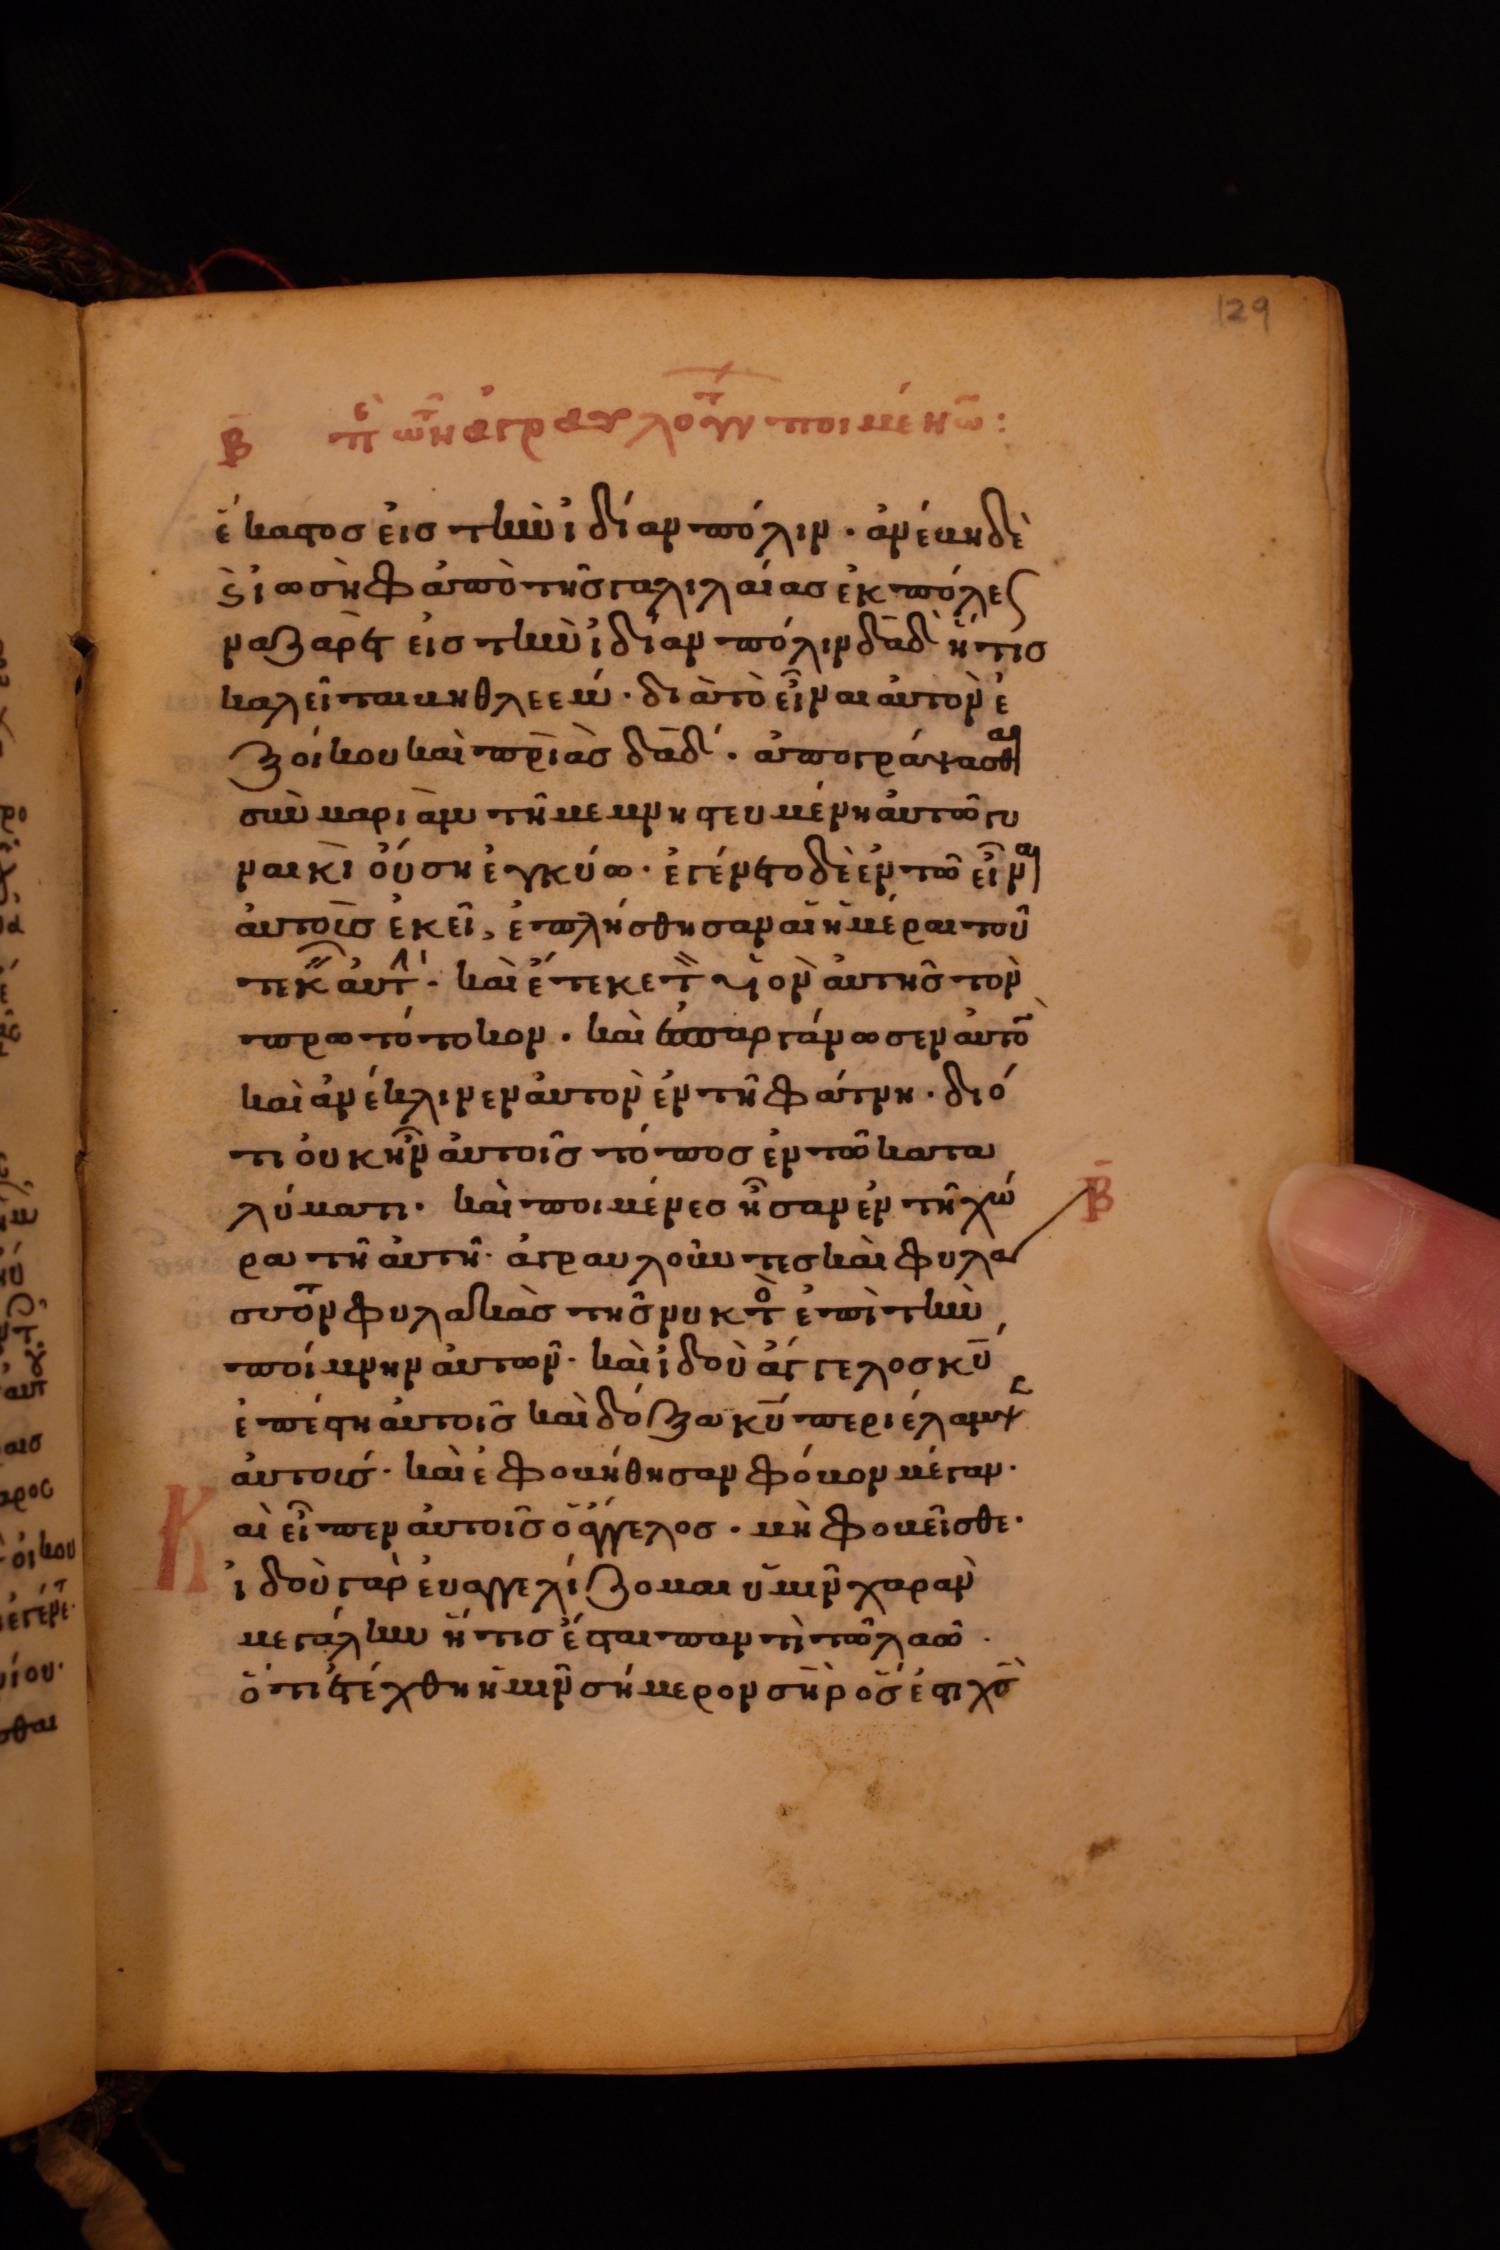 129
Β̄ πε τῶν ἀγραυλούντων ποιμένων:
ἕκαστος εἰς τὴν ἰδίαν πόλιν · ἀνέβη δὲ
ϗ ἰωσὴφ ἀπὸ τῆς γαλιλαίας ἐκ πόλεως
ναζαρὲτ εἰς τὴν ἰδίαν πόλιν δᾱδ ἥτις
καλεῖται βηθλεέμ · διὰ τὸ εἶναι αὐτὸν ἐ
ξ οἴκου καὶ πρ̄ιᾶς δᾱδ · ἀπογράψασθαι
σὺν μαριὰμ τῆ μεμνηστευμένη αὐτῶ γυ
ναικὶ οὔση ἐγκύω · ἐγένετο δὲ ἐν τῶ εἶναι
αὐτοὺς ἐκεῖ, ἐπλήσθησαν αἱ ἡμέραι τοῦ
τεκεῖν αὐτήν · καὶ ἔτεκε τὸν υἱὸν αὐτῆς τὸν
πρωτότοκον · καὶ ἐσπαργάνωσεν αὐτὸ
καὶ ἀνέκλινεν αὐτὸν ἐν τῆ φάτνη · διό
τι οὐκ ἦν αὐτοῖς τόπος ἐν τῶ κατα
λύματι · καὶ ποιμένες ἦσαν ἐν τῆ χώ
ρα τῆ αὐτῆ · ἀγραυλοῦντες καὶ φυλά Β̄
σσοντες φυλακὰς τῆς νυκτὸς ἐπὶ τὴν
ποίμνην αὐτῶν · καὶ ἰδοὺ ἄγγελος κ̄υ
ἐπέστη αὐτοῖς καὶ δόξα κ̄υ περιέλαμψε
αὐτούς · καὶ ἐφοβήθησαν φόβον μέγαν ·
Καὶ εἶπεν αὐτοῖς ὁ ἄγγελος · μὴ φοβεῖσθε ·
ἰδοὺ γὰρ εὐαγγελίζομαι ὑμῖν χαρὰν
μεγάλην ἥτις ἔσται παντὶ τῶ λαῶ ·
ὅτι ἐτέχθη ἡμῖν σήμερον σ̄ηρ ὅς ἐστι χ̄ς